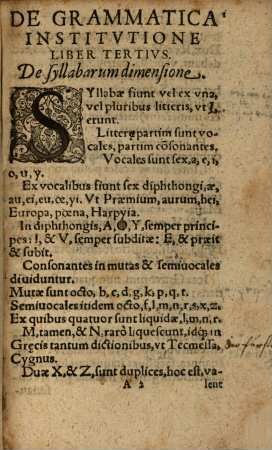 DE GRAMMATICA
INSTITVTIONE
LIBER TERTIVS.
De syllabarum dimensione.
SYllabæ fiunt vel ex vna,
vel pluribus litteris, vt I,
erunt.
Litterę partim sunt vo-
cales, partim cõsonantes.
Vocales sunt sex, a, e, i,
o, u, y.
Ex vocalibus fiunt sex diphthongi, æ,
au, ei, eu, œ, yi. Vt Præmium, aurum, hei,
Europa, pœna, Harpyia.
In diphthongis, A, O, Y, semper princi-
pes: I, & V, semper subditæ: E, & præit
& subit.
Consonantes in mutas & semiuocales
diuiduntur.
Mutæ sunt octo, b, c, d, g, k, p, q, t.
Semiuocales itidem octo, f, l, m, n, r, s, x, z.
Ex quibus quatuor sunt liquidæ, l, m, n, r.
M, tamen, & N, rarò liquescunt, idq; in
Gręcis tantum dictionibus, vt Tecmessa,
Cygnus.
Duæ X, & Z, sunt duplices, hoc est, va-
A 2 lent